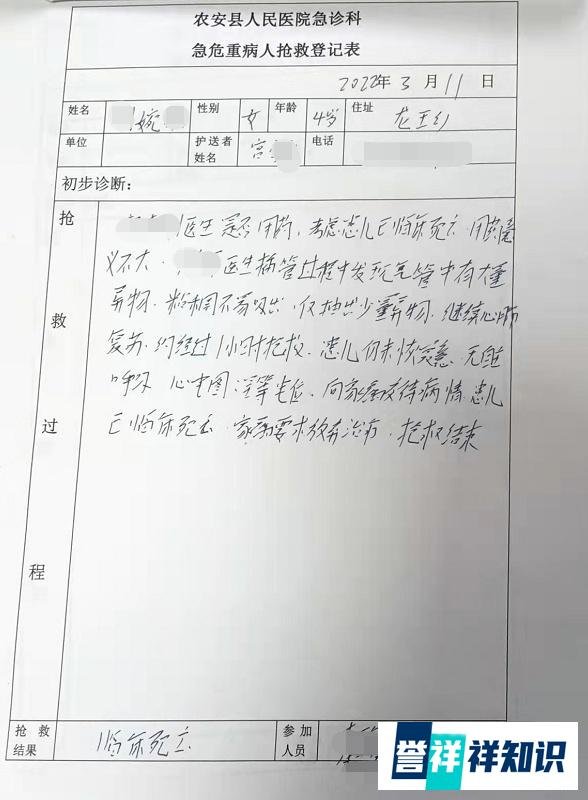 农安县人民医院急诊科
急危重病人抢救登记表
2022年3月11日
姓名 婉 性别 女 年龄 4岁 住址 龙王乡
单位 护送者姓名 宫 电话
初步诊断:
抢救过程
医生是否用药,考虑患儿已临床死亡,用药意
义不大。医生插管过程中发现气管中有大量
异物,粘稠不易吸出,仅抽出少量异物,继续心肺
复苏,约经过1小时抢救,患儿仍未恢复意识,无自主
呼吸,心电图呈等电位,向家属交待病情,患儿
已临床死亡,家属要求放弃治疗,抢救结束
抢救结果 临床死亡 参加人员
誉祥祥知识